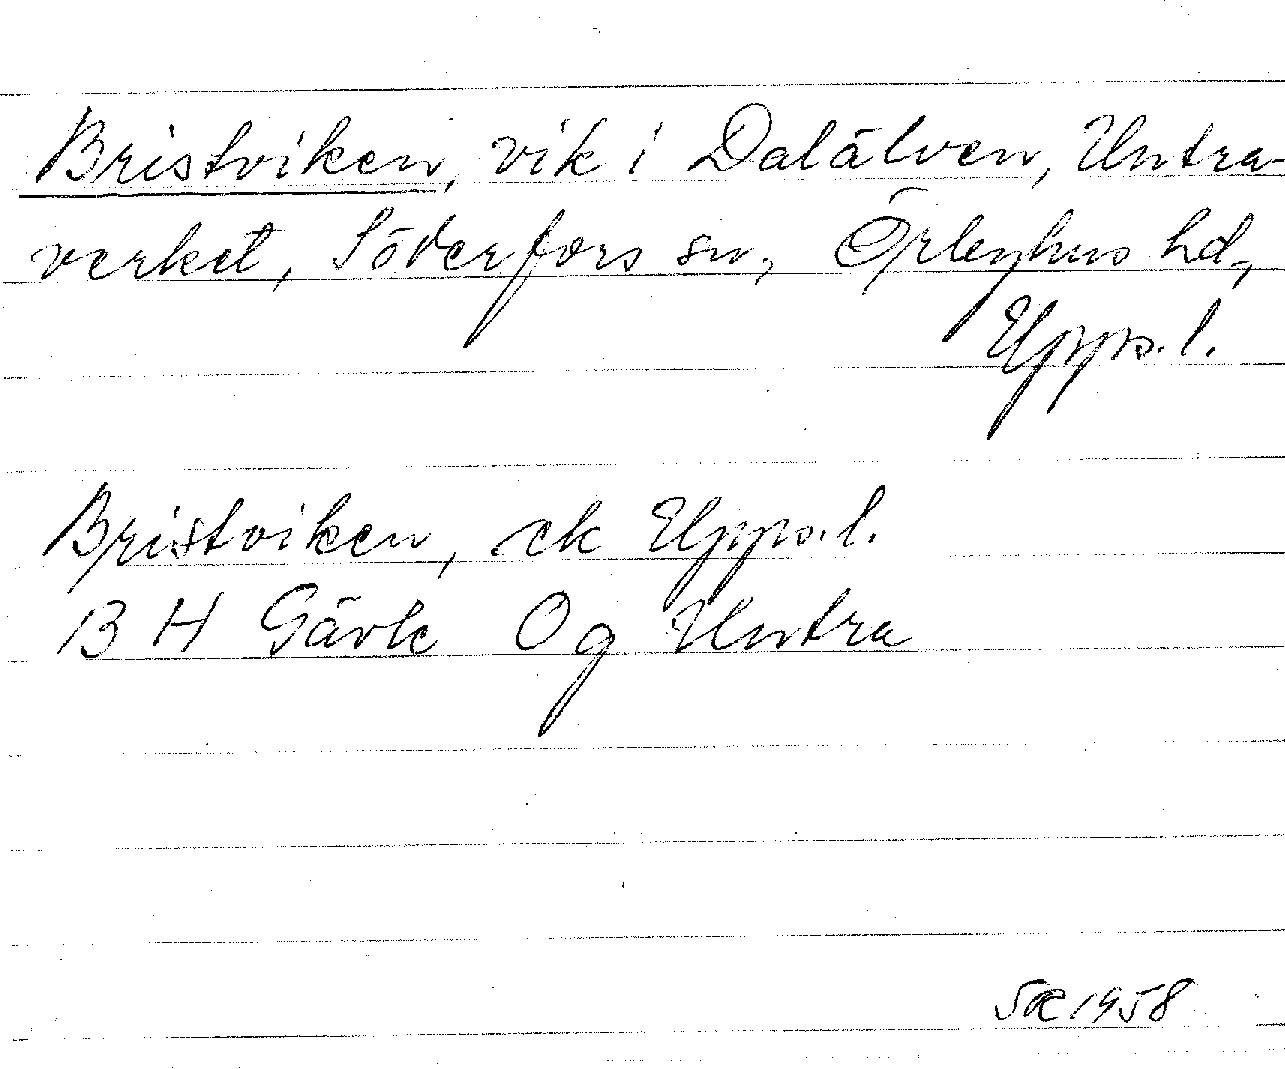 Bristviken, vik i Dalälven, Untra-
verket, Söderfors sn, Örbyhus hd,
Upps.l.
Bristviken, ek Upps.l.
B H Gävle Og Untra
SOE 1958